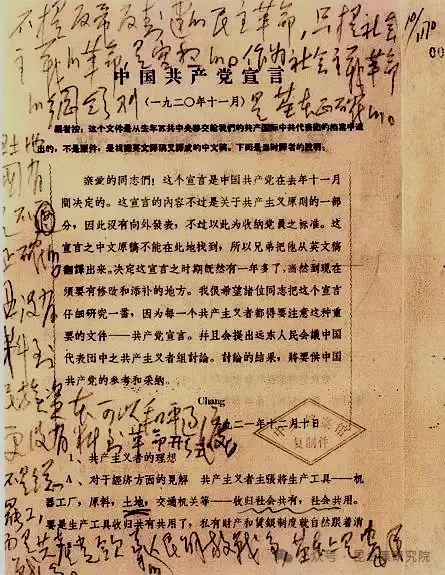 不提反帝反封建的民主革命，只提社会
主义的革命，是空想的。作为社会主义革命
的纲领则 是基本正确的。
中国共产党宣言
(一九二〇年十一月)
译者按：这个文件是从去年苏共中央移交给我們的共产国际中共代表团的档案中选
出的，不是原件，是根据英文譯稿又譯成的中文稿。下面是当时譯者的說明。
亲爱的同志們！这个宣言是中国共产党在去年十一月
間决定的。这宣言的內容不过是关于共产主义原則的一部
分，因此沒有向外發表，不过以此为收納党員之标准。这
宣言之中文原稿不能在此地找到，所以兄弟把他从英文稿
翻譯出来。决定这宣言之时期既然有一年多了，当然到現在
須要有修改和添补的地方。我很希望諸位同志把这个宣言
仔細研究一番，因为每一个共产主义者都得要注意这种重
要的文件——共产党宣言。幷且会提出远东人民会議中国
代表团中之共产主义者組討論。討論的結果，將要供中国
共产党的参考和采納。
Chang
一九二一年十二月十日
复制件
1、共产主义者的理想
A、对于經济方面的見解　共产主义者主張將生产工具——机
器工厂，原料，土地，交通机关等——收归社会共有，社会共用。
要是生产工具收归共有共用了，私有財产和賃銀制度就自然跟着消
土地
国有
是不
正确的
没有
料到
民族资本可以和平过渡
更没有料到革命形式
不是总
罢工，
而是共产党领导的人民解放战争，基本上是农民
战争
公众号
研究院